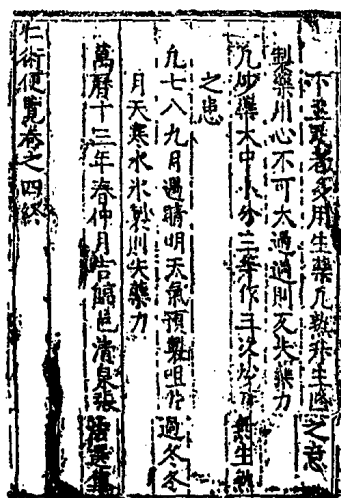 下至眾者多用生藥凡製非生𠙚之意
製藥用心不可太過過則又失藥力
凡炒藥大中小分三等作三次炒 無生熟
之患
凡七八九月遇晴明天氣預製咀 過冬冬
月天寒水氷製則失藥力
萬曆十三年春仲月吉 邑清泉張
仁術便覽卷之四終